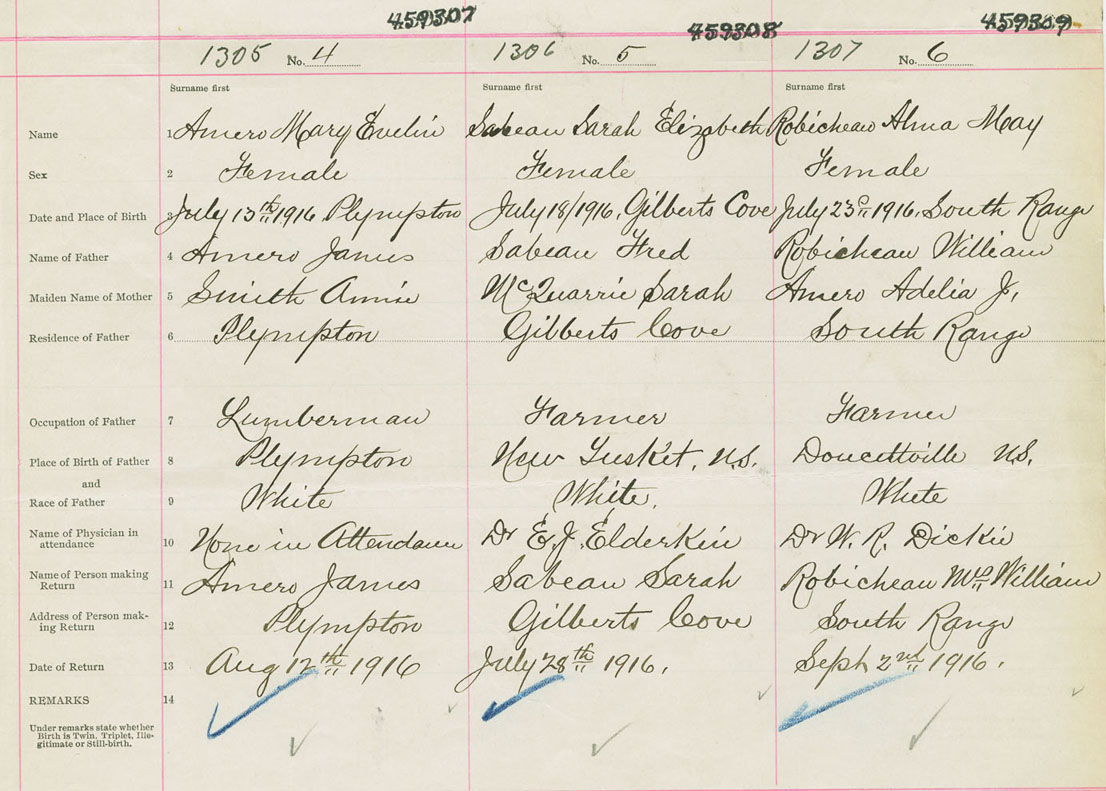 459307 459308 459309
1305 No. 4 1306 No. 5 1307 No. 6
Surname first Surname first Surname first
Name 1 Amero Mary Evelin Sabeau Sarah Elizabeth Robicheau Alma May
Sex 2 Female Female Female
Date and Place of Birth 3 July 13th 1916, Plympton July 18/1916, Gilberts Cove July 23d 1916, South Range
Name of Father 4 Amero James Sabeau Fred Robicheau William
Maiden Name of Mother 5 Smith Annie McQuarrie Sarah Amero Adelia J.
Residence of Father 6 Plympton Gilberts Cove South Range
Occupation of Father 7 Lumberman Farmer Farmer
Place of Birth of Father 8 Plympton New Tusket, N.S. Doucettville N.S.
and
Race of Father 9 White White. White
Name of Physician in
attendance 10 None in Attendance Dr E. J. Elderkin Dr W. R. Dickie
Name of Person making
Return 11 Amero James Sabeau Sarah Robicheau Mrs William
Address of Person mak-
ing Return 12 Plympton Gilberts Cove South Range
Date of Return 13 Aug 12th 1916 July 28th 1916. Sept 2nd 1916.
REMARKS 14
Under remarks state whether
Birth is Twin, Triplet, Ille-
gitimate or Still-birth.